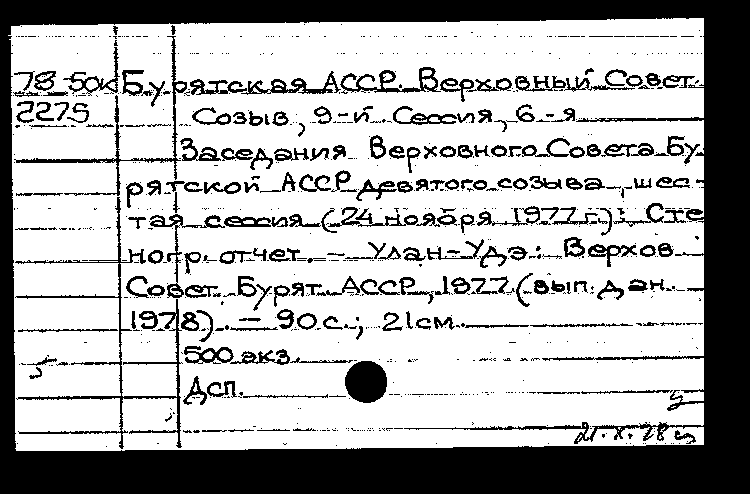 78-50к Бурятская АССР. Верховный Совет.
2275 Созыв, 9-й. Сессия, 6-я
Заседания Верховного Совета Бу-
рятской АССР девятого созыва, шес-
тая сессия (24 ноября 1977 г.): Сте
ногр. отчет. - Улан-Удэ: Верхов
Совет Бурят. АССР, 1977 (вып. дан.
1978). - 90 с.; 21 см.
500 экз.
Дсп.
21.X.78